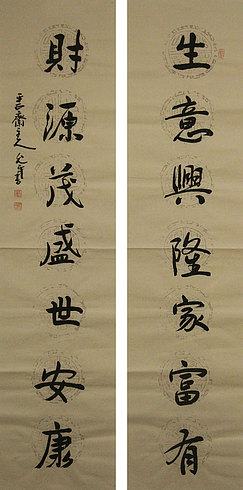 生意興隆家富有
財源茂盛世安康